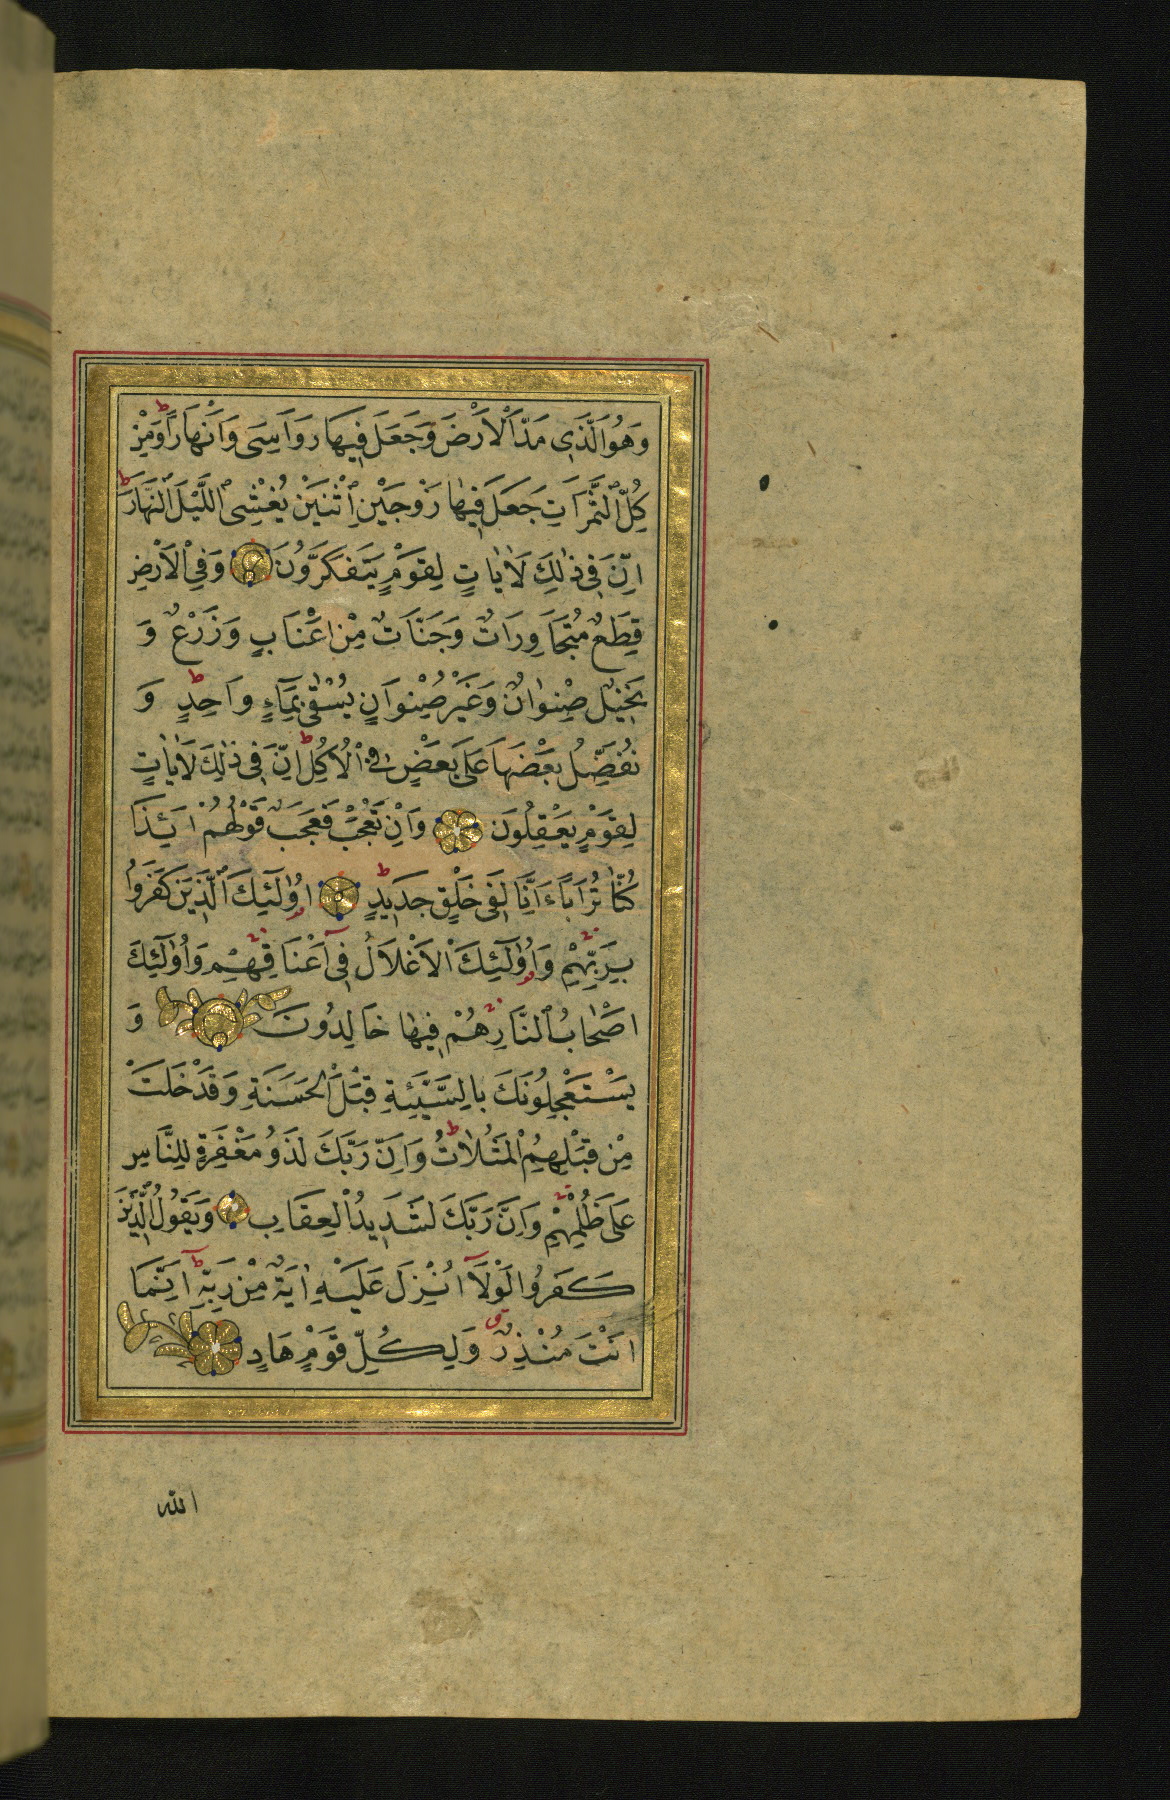 وَهُوَ الَّذَي مَدَّ اْلاَرْضَ وَجَعَلَ فِيهَا رَوَاسِىَ وَاَنْهَارًا ط وَمِنْ
كُلِّ الثَّمَرَاتِ جَعَلَ فِيهَا زَوْجَيْنِ اثْنَيْنِ يُغْشِى اللَّيْلَ النَّهَارَ ط
اِنَّ فِى ذٰلِكَ لَاٰيَاتٍ لِقَوْمٍ يَتَفَكَّرُونَ وَفِى اْلاَرْضِ
قِطَعٌ مُتَجَاوِرَاتٌ وَجَنَّاتٌ مِنْ اَعْنَابٍ وَزَرْعٌ وَ
نَخِيلٌ صِنْوَانٌ وَغَيْرُ صِنْوَانٍ يُسْقٰى بِمَآءٍ وَاحِدٍ ط وَ
نُفَضِّلُ بَعْضَهَا عَلَى بَعْضٍ فِى اْلاُكُلِ ط اِنَّ فِى ذٰلِكَ لَاٰيَاتٍ
لِقَوْمٍ يَعْقِلُونَ وَاِنْ تَعْجَبْ فَعَجَبٌ قَوْلُهُمْ ائِذَا
كُنَّا تُرَابًا ءَاِنَّا لَفِى خَلْقٍ جَدِيدٍ ط اُولٰٓئِكَ الَّذِينَ كَفَرُوا
بِرَبِّهِمْ وَاُولٰٓئِكَ اْلاَغْلَالُ فِٓى اَعْنَاقِهِمْ وَاُولٰٓئِكَ
اَصْحَابُ النَّارِ هُمْ فِيهَا خَالِدُونَ وَ
يَسْتَعْجِلُونَكَ بِالسَّيِّئَةِ قَبْلَ الْحَسَنَةِ وَقَدْ خَلَتْ
مِنْ قَبْلِهِمُ الْمَثُلَاتُ ط وَاِنَّ رَبَّكَ لَذُو مَغْفِرَةٍ لِلنَّاسِ
عَلَى ظُلْمِهِمْ وَاِنَّ رَبَّكَ لَشَدِيدُ الْعِقَابِ وَيَقُولُ الَّذِينَ
كَفَرُوا لَوْلَٓا اُنْزِلَ عَلَيْهِ اٰيَةٌ مِنْ رَبِّهِ ط اِنَّمَا
اَنْتَ مُنْذِرٌ وَلِكُلِّ قَوْمٍ هَادٍ
الله